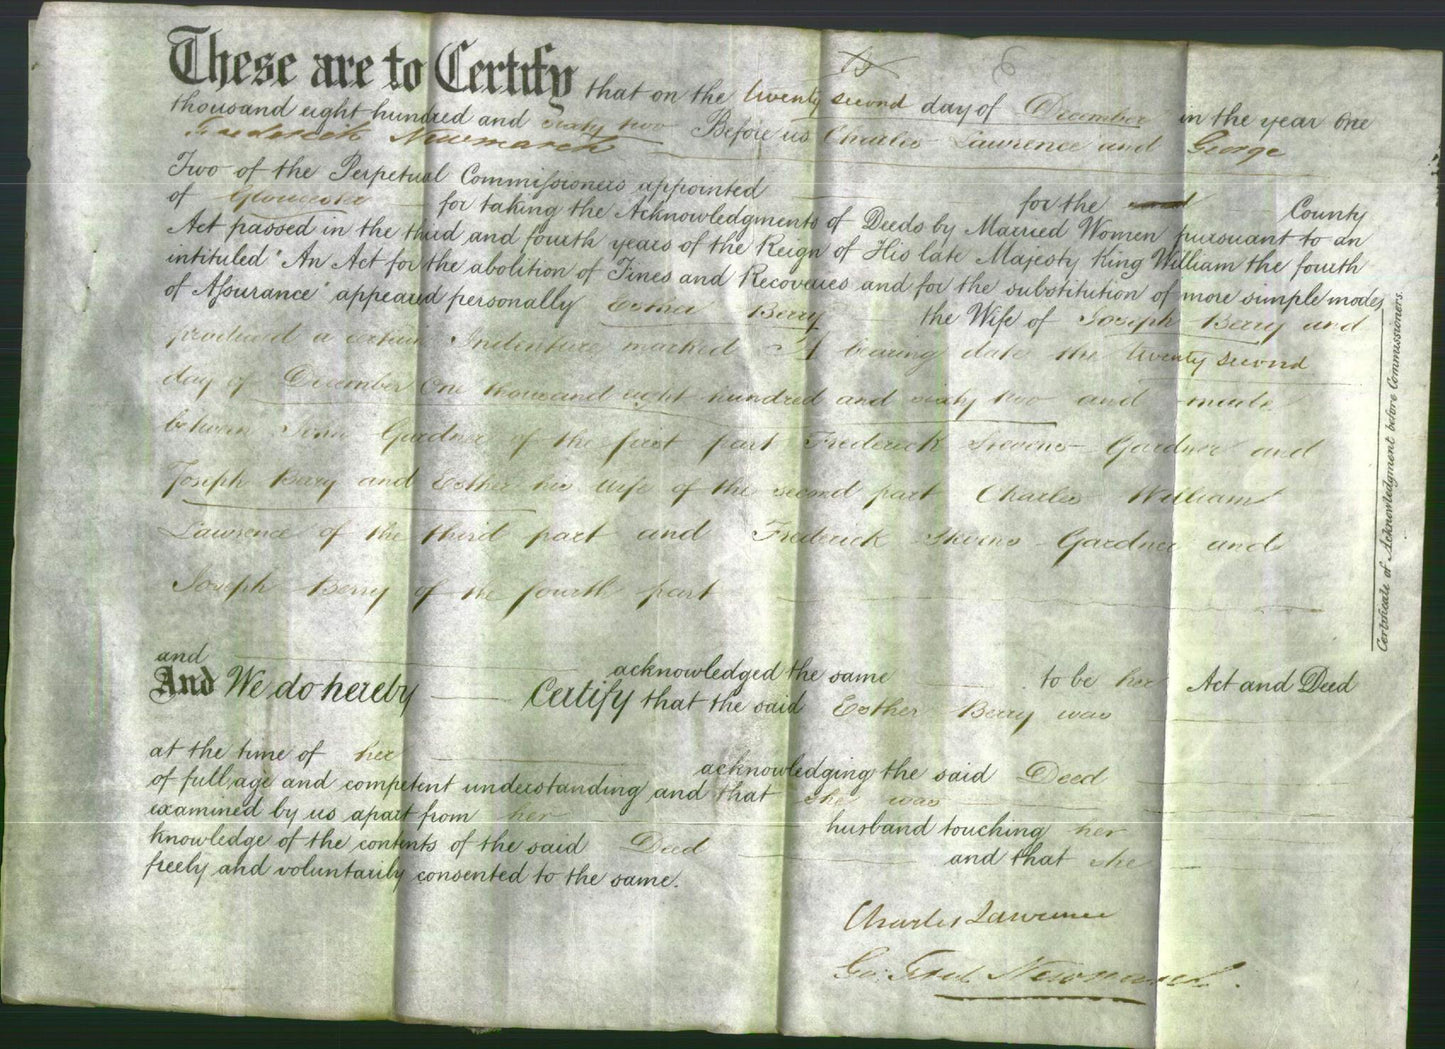 These are to Certify that on the twenty second day of December in the year one
thousand eight hundred and sixty two Before us Charles Lawrence and George
Frederick Newmarch
Two of the Perpetual Commissioners appointed for the County
of Gloucester for taking the Acknowledgments of Deeds by Married Women pursuant to an
Act passed in the third and fourth years of the Reign of His late Majesty King William the fourth
intituled "An Act for the abolition of Fines and Recoveries and for the substitution of more simple modes
of Assurance" appeared personally Esther Berry the Wife of Joseph Berry and
produced a certain Indenture marked A bearing date the twenty second
day of December One thousand eight hundred and sixty two and made
between John Gardner of the first part Frederick Stevens Gardner and
Joseph Berry and Esther his wife of the second part Charles William
Lawrence of the third part and Frederick Stevens Gardner and
Joseph Berry of the fourth part
and acknowledged the same to be her Act and Deed
And We do hereby Certify that the said Esther Berry was
at the time of her acknowledging the said Deed
of full age and competent understanding and that she was
examined by us apart from her husband touching her
knowledge of the contents of the said Deed and that she
freely and voluntarily consented to the same.
Charles Lawrence
Geo: Fred. Newmarch.
Certificate of Acknowledgment before Commissioners.